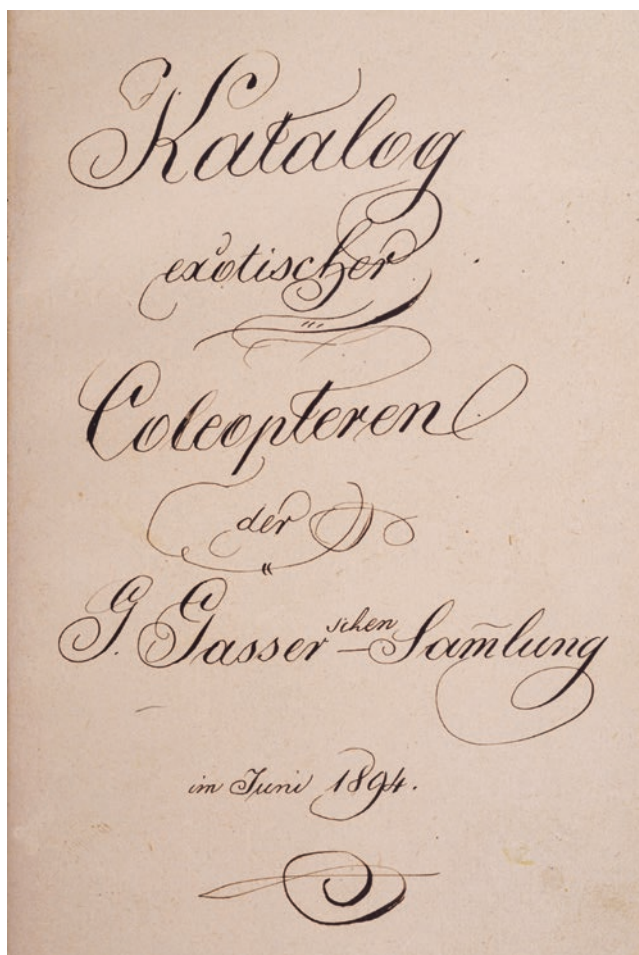 Katalog
exotischer
Coleopteren
der
G. Gasser'schen-Sam̅lung
im Juni 1894.